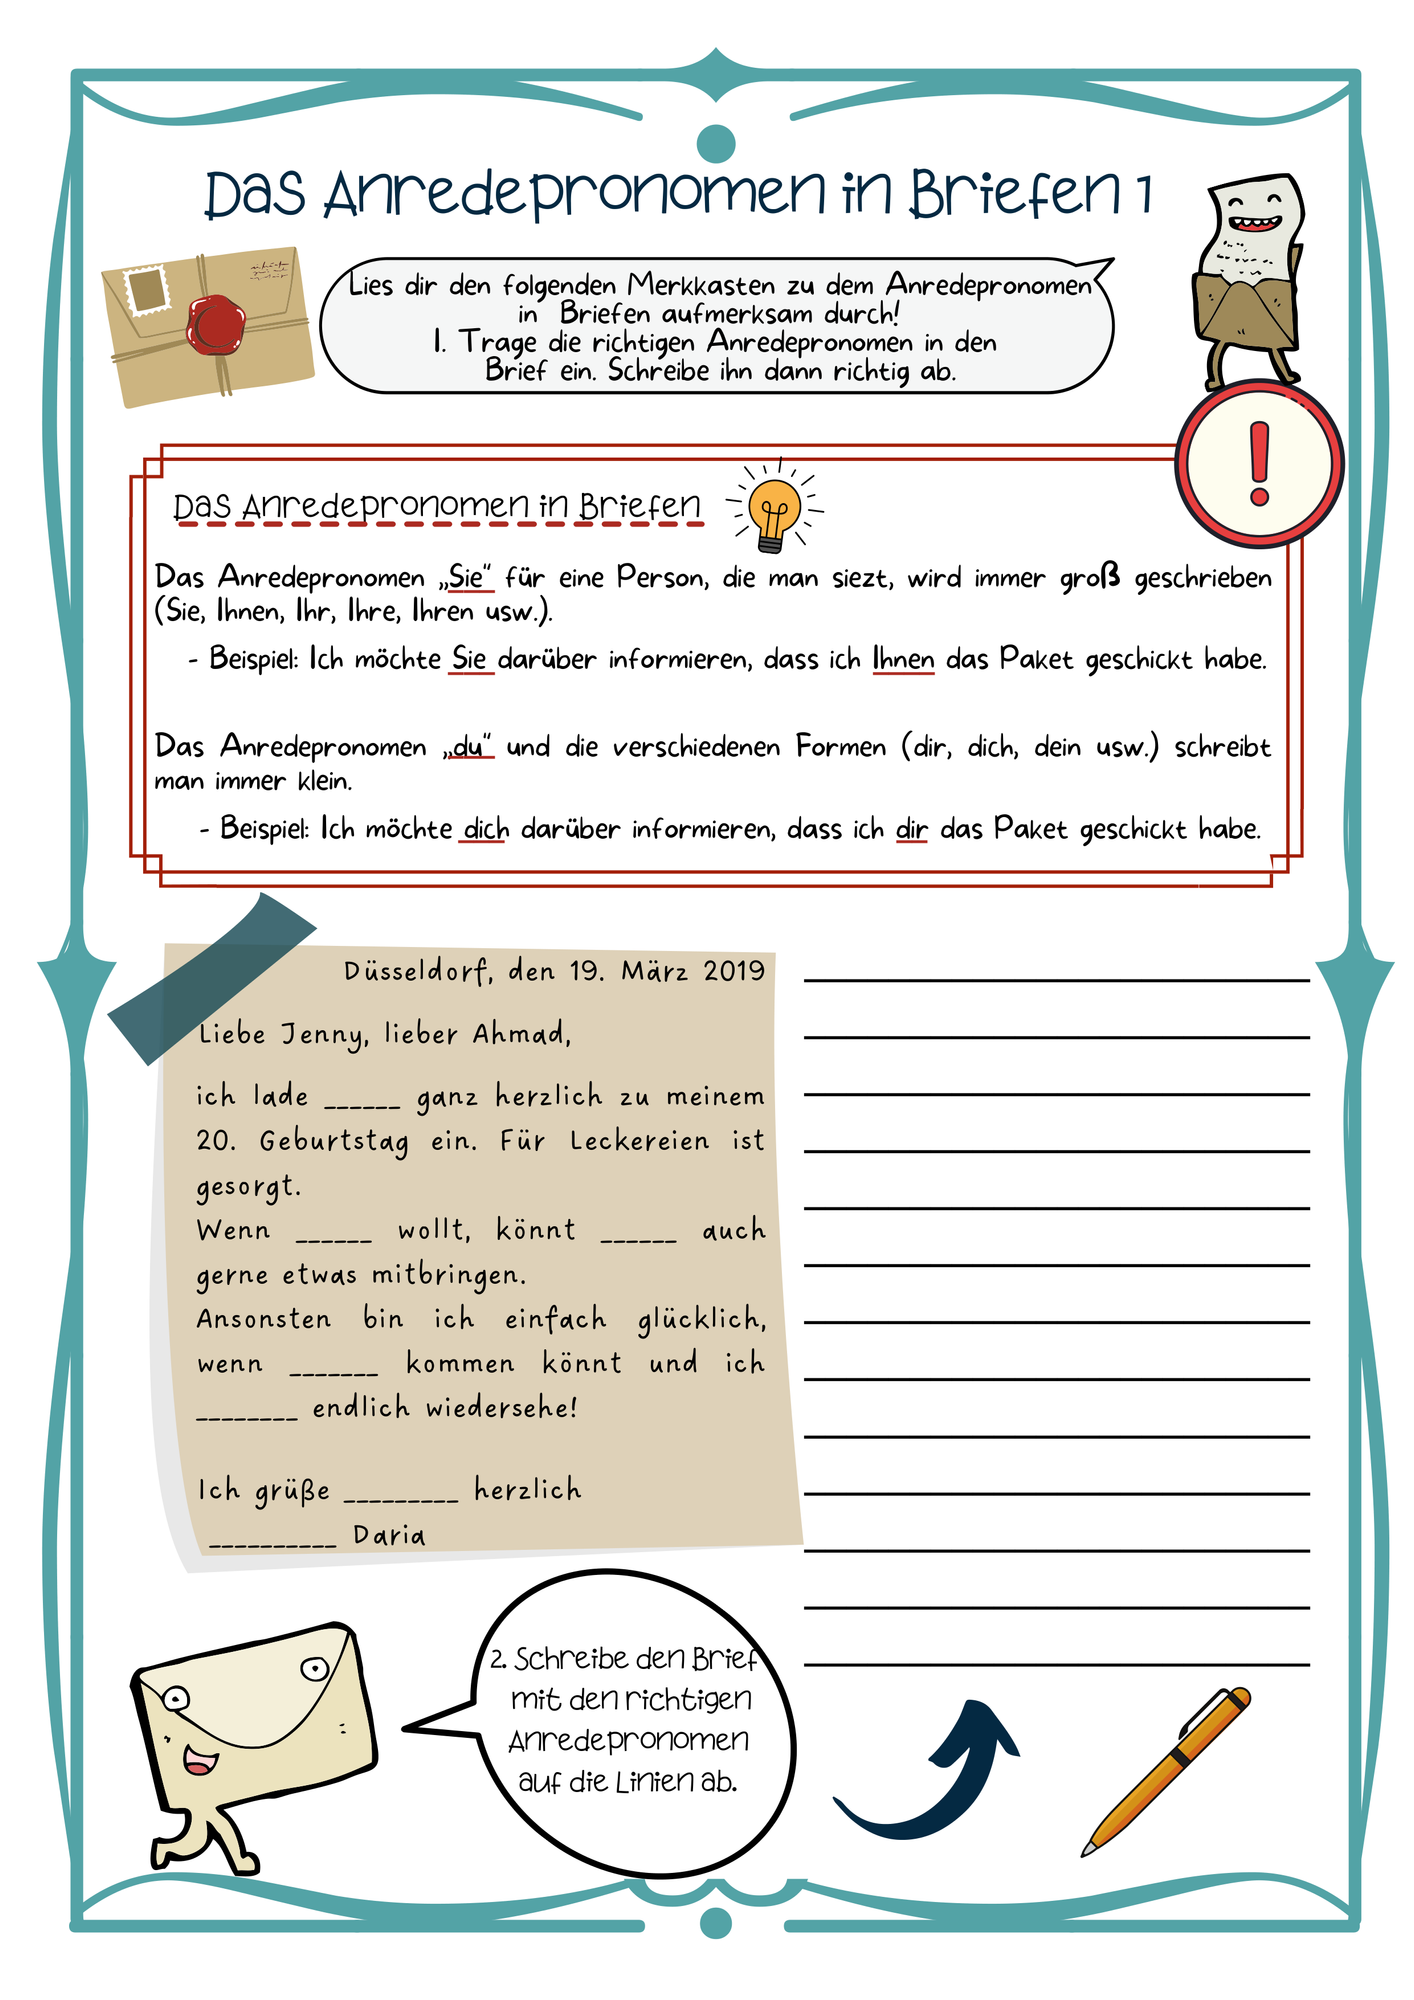 Das Anredepronomen in Briefen 1
Lies dir den folgenden Merkkasten zu dem Anredepronomen
in Briefen aufmerksam durch!
1. Trage die richtigen Anredepronomen in den
Brief ein. Schreibe ihn dann richtig ab.
!
Das Anredepronomen in Briefen
Das Anredepronomen „Sie“ für eine Person, die man siezt, wird immer groß geschrieben
(Sie, Ihnen, Ihr, Ihre, Ihren usw.).
- Beispiel: Ich möchte Sie darüber informieren, dass ich Ihnen das Paket geschickt habe.
Das Anredepronomen „du“ und die verschiedenen Formen (dir, dich, dein usw.) schreibt
man immer klein.
- Beispiel: Ich möchte dich darüber informieren, dass ich dir das Paket geschickt habe.
Düsseldorf, den 19. März 2019
Liebe Jenny, lieber Ahmad,
ich lade ______ ganz herzlich zu meinem
20. Geburtstag ein. Für Leckereien ist
gesorgt.
Wenn ______ wollt, könnt ______ auch
gerne etwas mitbringen.
Ansonsten bin ich einfach glücklich,
wenn _______ kommen könnt und ich
________ endlich wiedersehe!
Ich grüße _________ herzlich
__________ Daria
2. Schreibe den Brief
mit den richtigen
Anredepronomen
auf die Linien ab.